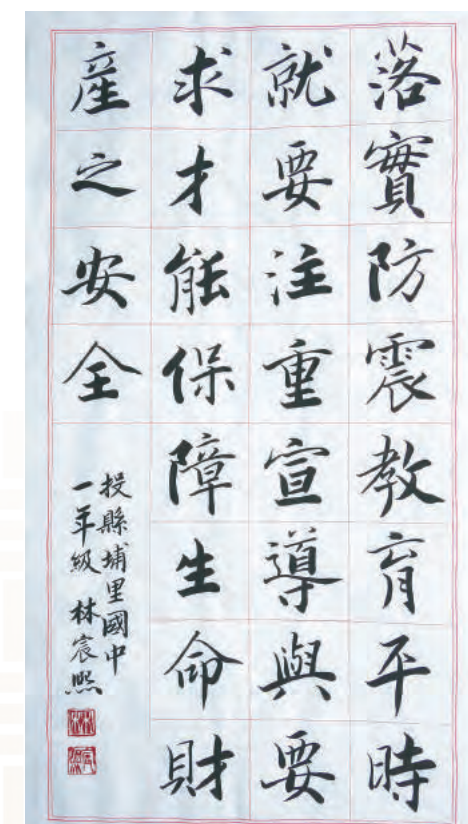 落實防震教育平時
就要注重宣導與要
求才能保障生命財
産之安全
投縣埔里國中
一年級 林宸熙